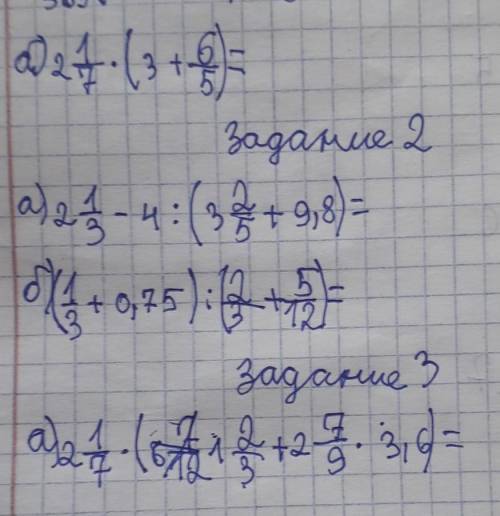 б) 2 1/7 · (3 + 6/5) =
Задание 2
а) 2 1/3 - 4 : (3 2/5 + 9,8) =
б) (1/3 + 0,75) : (2/3 + 5/12) =
Задание 3
а) 2 1/7 · ( 1 2/3 + 2 7/9 · 3,6) =